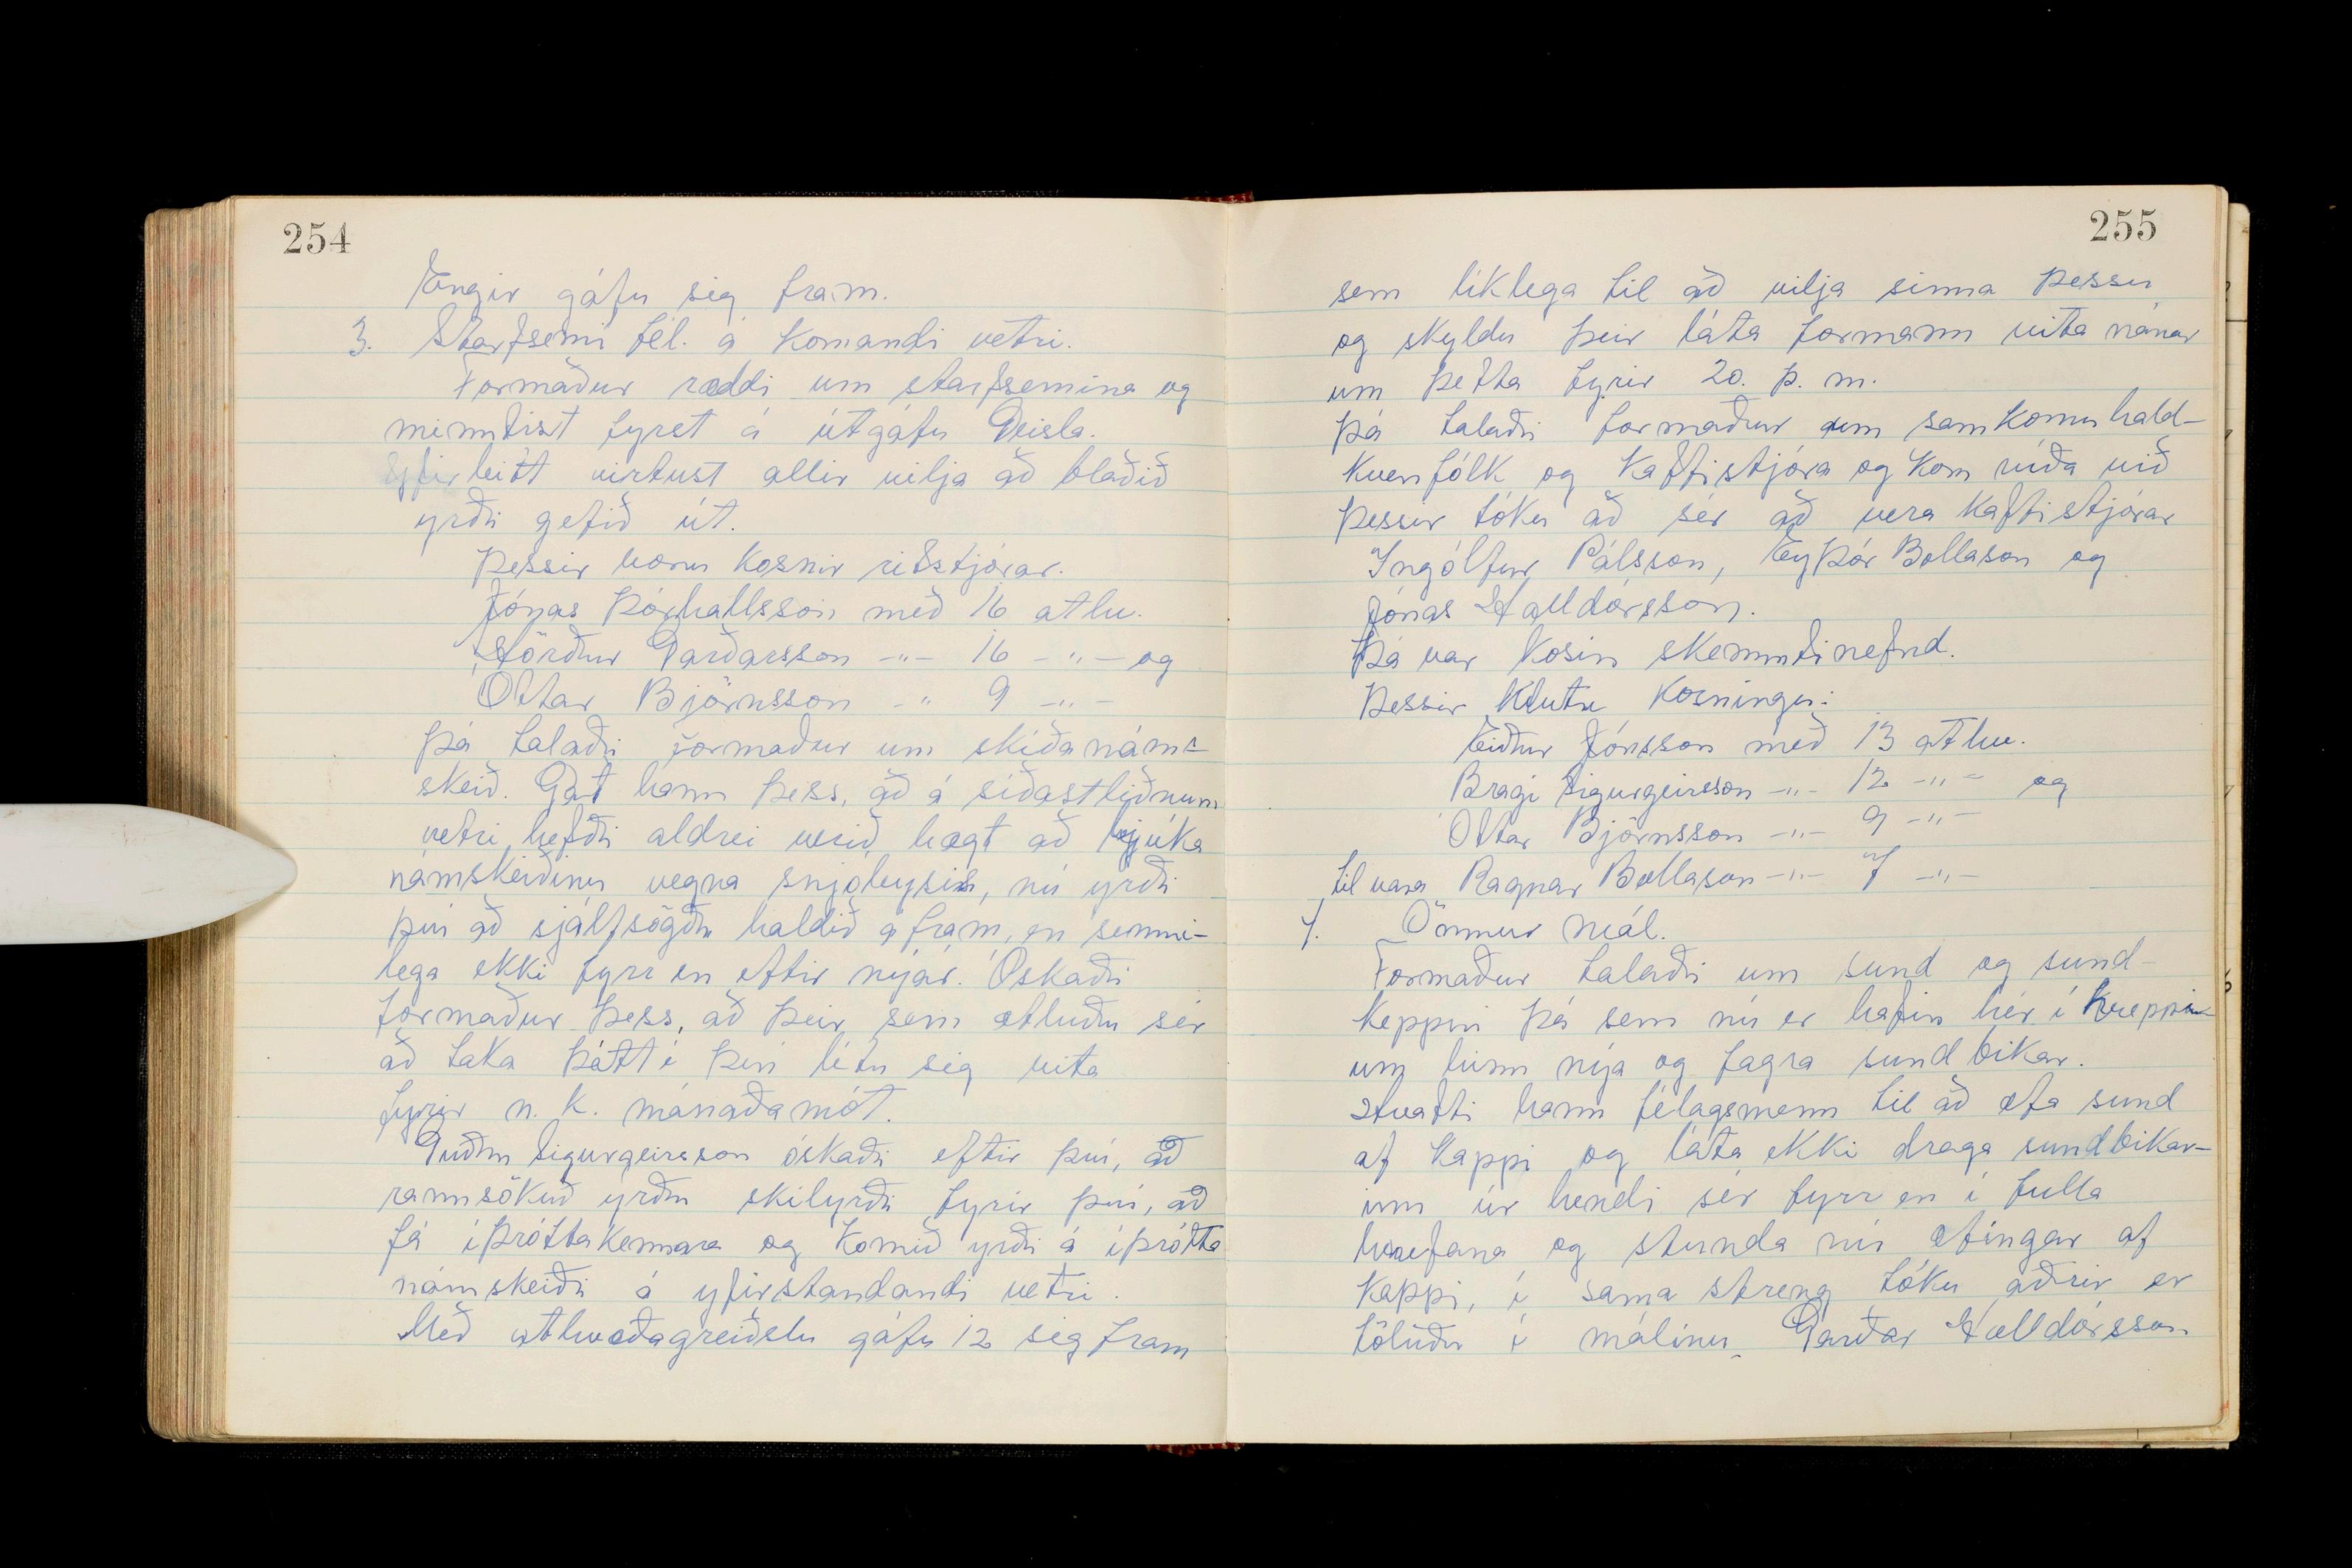 254
Engir gáfu sig fram.
3. Starfsemi fél. á komandi vetri.
Formaður ræddi um starfsemina og
minntist fyrst á útgáfu Geisla.
Yfirleitt virtust allir vilja að blaðið
yrði gefið út.
Þessir voru kosnir ritstjórar.
Jónas Þórhallsson með 16 atkv.
Hörður Garðarsson -"- 16 -"- og
Óttar Björnsson -" 9 -"-
Þá talaði formaður um skíðanám-
skeið. Gat hann þess, að á síðastliðnum
vetri hefði aldrei verið hægt að ljúka
námskeiðinu vegna snjóleysis, nú yrði
því að sjálfsögðu haldið áfram, en senni-
lega ekki fyrr en eftir nýár. Óskaði
formaður þess, að þeir sem ætluðu sér
að taka þátt í því létu sig vita
fyrir n. k. mánaðamót.
Guðm Sigurgeirsson óskaði eftir því, að
rannsökuð yrðu skilyrði fyrir því, að
fá íþróttakennara og komið yrði á íþrótta
námskeiði á yfirstandandi vetri.
Með atkvæðagreiðslu gáfu 12 sig fram
255
sem líklega til að vilja sinna þessu
og skyldu þeir láta formann vita nánar
um þetta fyrir 20. þ. m.
Þá talaði formaður um samkomuhald-
kvenfólk og kaffistjóra og kom víða við
Þessir tóku að sér að vera kaffistjórar
Ingólfur Pálsson, Eyþór Bollason og
Jónas Halldórsson.
Þá var kosin skemmtinefnd.
Þessir hlutu kosningu:
Eiður Jónsson með 13 atkv.
Bragi Sigurgeirsson -"- 12 -"- og
Óttar Björnsson -"- 9 -"-
til vara Ragnar Bollason -"- 7 -"-
4. Önnur mál.
Formaður talaði um sund og sund-
keppni þá sem nú er hafin hér í hreppi
um hinn nýja og fagra sundbikar.
Hvatti hann félagsmenn til að æfa sund
af kappi og láta ekki draga sundbikar-
inn úr hendi sér fyrr en í fulla
hnefana og stunda nú æfingar af
kappi, í sama streng tóku aðrir er
töluðu í málinu. Garðar Halldórsson